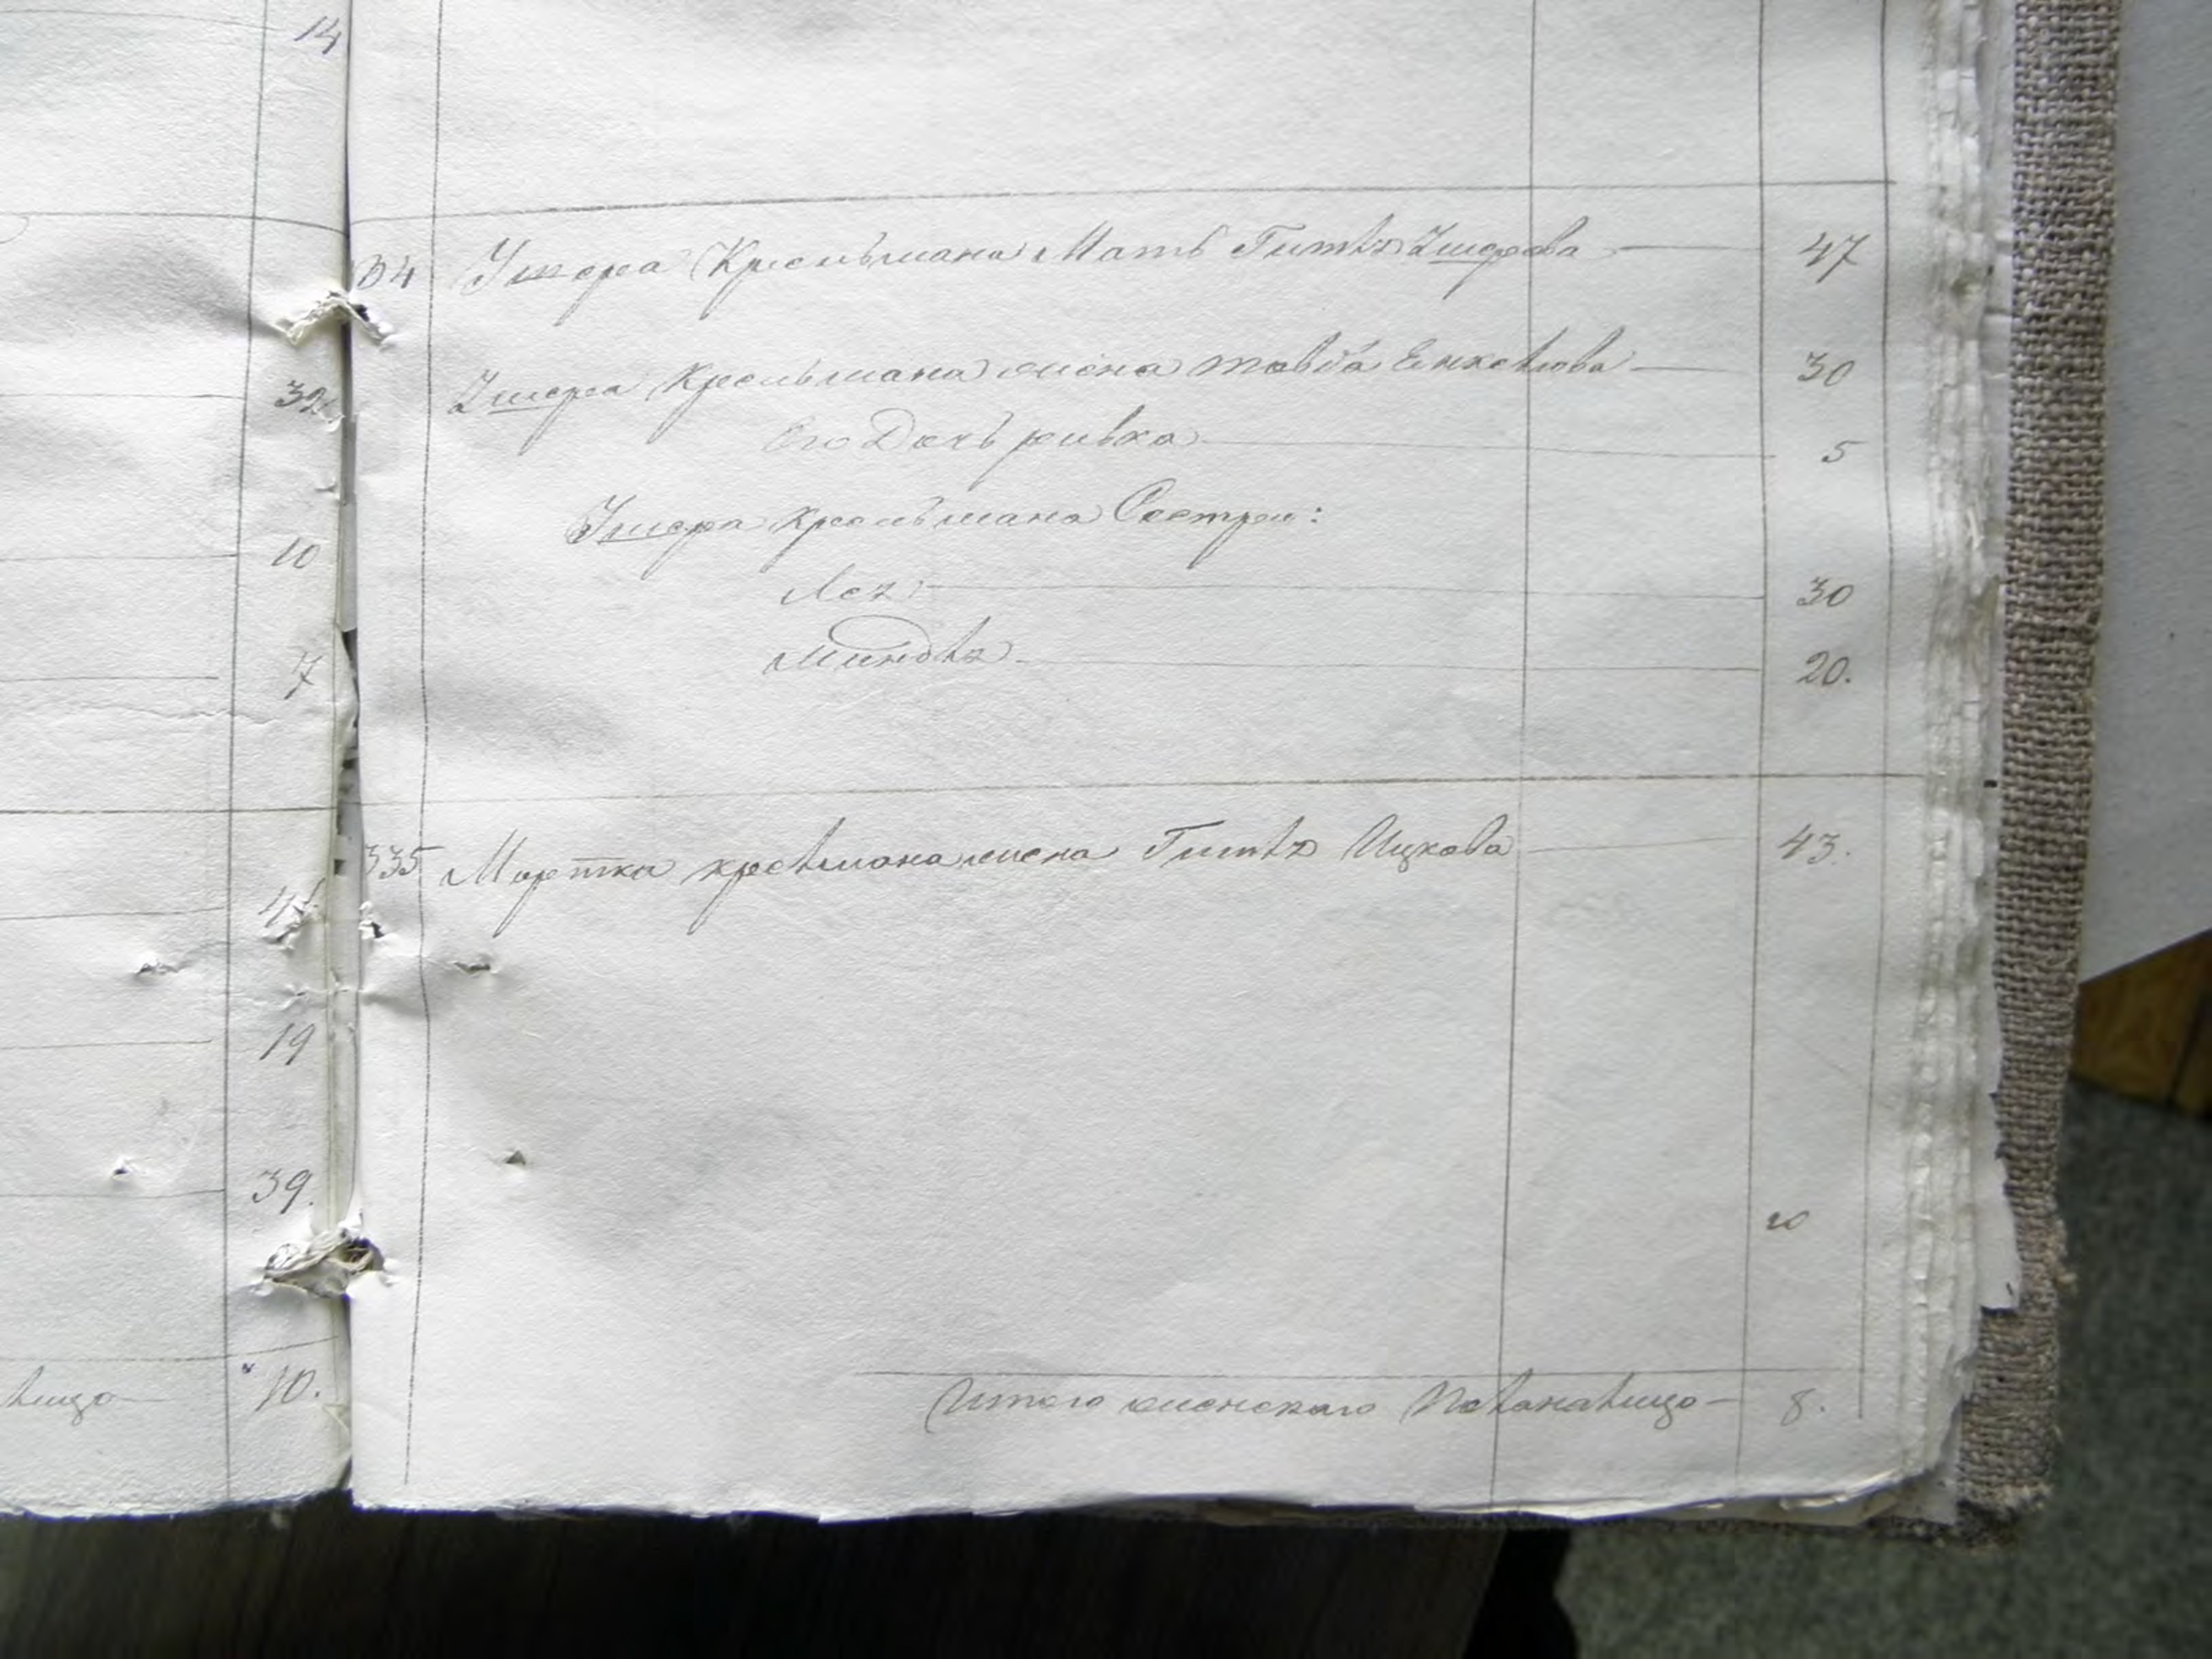 14
32
10
7
4
19
39.
10.
334 Ушера Крельмана Мать Гитля Ушерова — 47
Ушера Крельмана жена Товба Енкелюва — 30
Его Дочь ривка — 5
Ушера Крельмана Сестры:
Лея — 30
Миндля — 20.
335 Мортка крелмана жена Гитля Ицкова — 43.
Итого женскаго — 8.